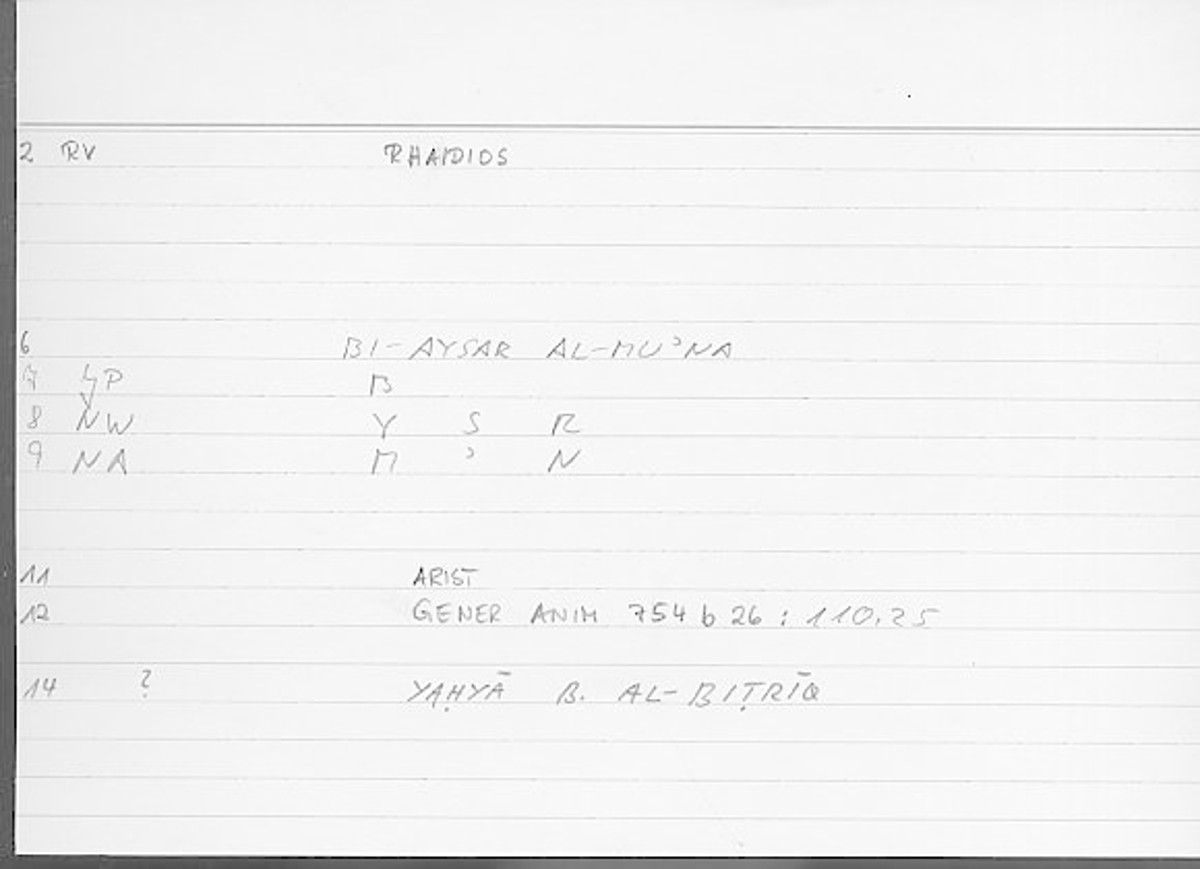 2 RV RHAIDIOS
6 BI-AYSAR AL-MUʾNA
7 P B
8 NW Y S R
9 NA M ʾ N
11 ARIST
12 GENER ANIM 754 b 26 : 110.25
14 ? YAḤYĀ B. AL-BIṬRĪQ